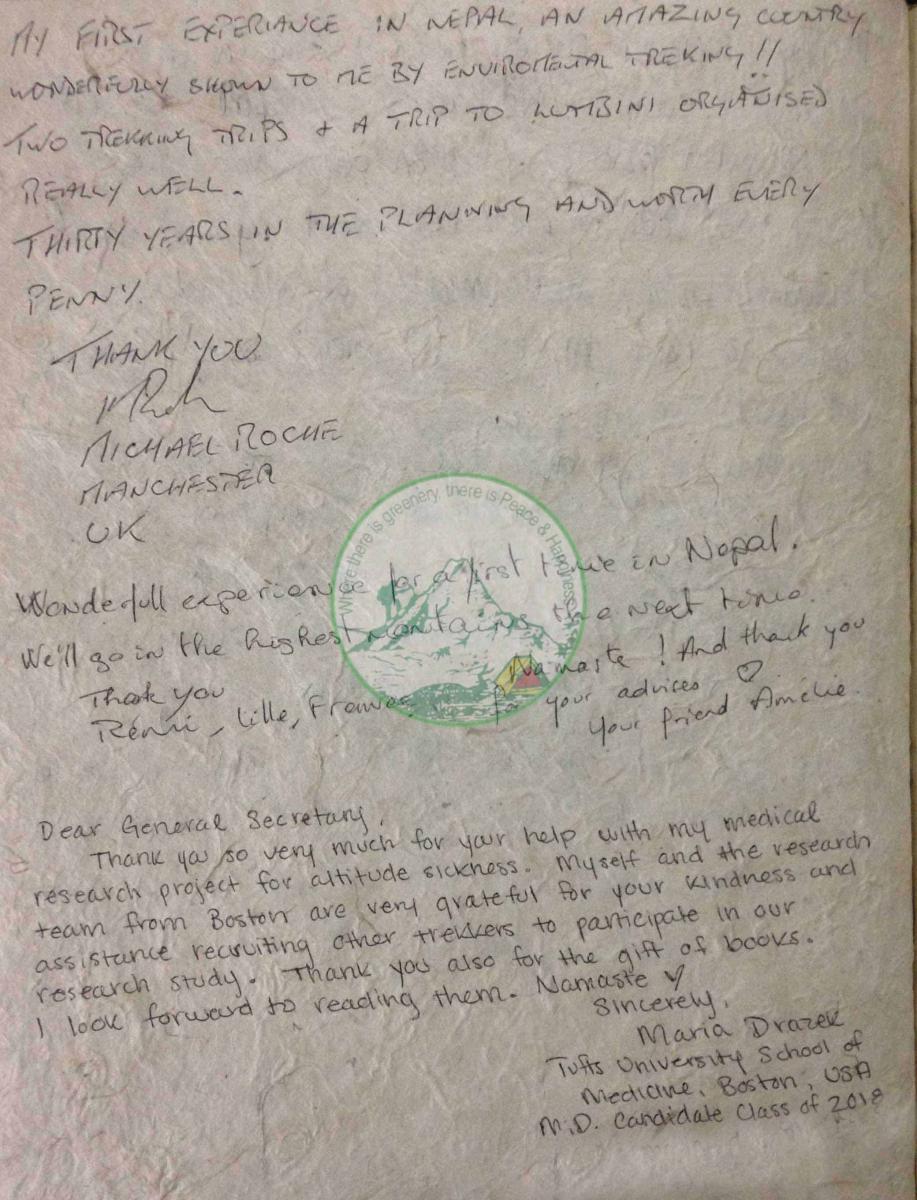 MY FIRST EXPERIANCE IN NEPAL, AN AMAZING COUNTRY
WONDERFULLY SHOWN TO ME BY ENVIROMENTAL TREKING!!
TWO TREKKING TRIPS + A TRIP TO LUMBINI ORGANISED
REALLY WELL.
THIRTY YEARS IN THE PLANNING AND WORTH EVERY
PENNY.
THANK YOU
MICHAEL ROCHE
MANCHESTER
UK
Where there is greenery, there is Peace & Happiness
Wonderfull experience for a first time in Nepal.
We'll go in the highest mountains the next time.
Thank you
Rémi, Lille, France
Namaste! And thank you
for your advices ♡
Your friend Amélie.
Dear General Secretary,
Thank you so very much for your help with my medical
research project for altitude sickness. Myself and the research
team from Boston are very grateful for your kindness and
assistance recruiting other trekkers to participate in our
research study. Thank you also for the gift of books.
I look forward to reading them. Namaste ♡
Sincerely,
Maria Drazek
Tufts University School of
Medicine, Boston, USA
M.D. Candidate Class of 2018